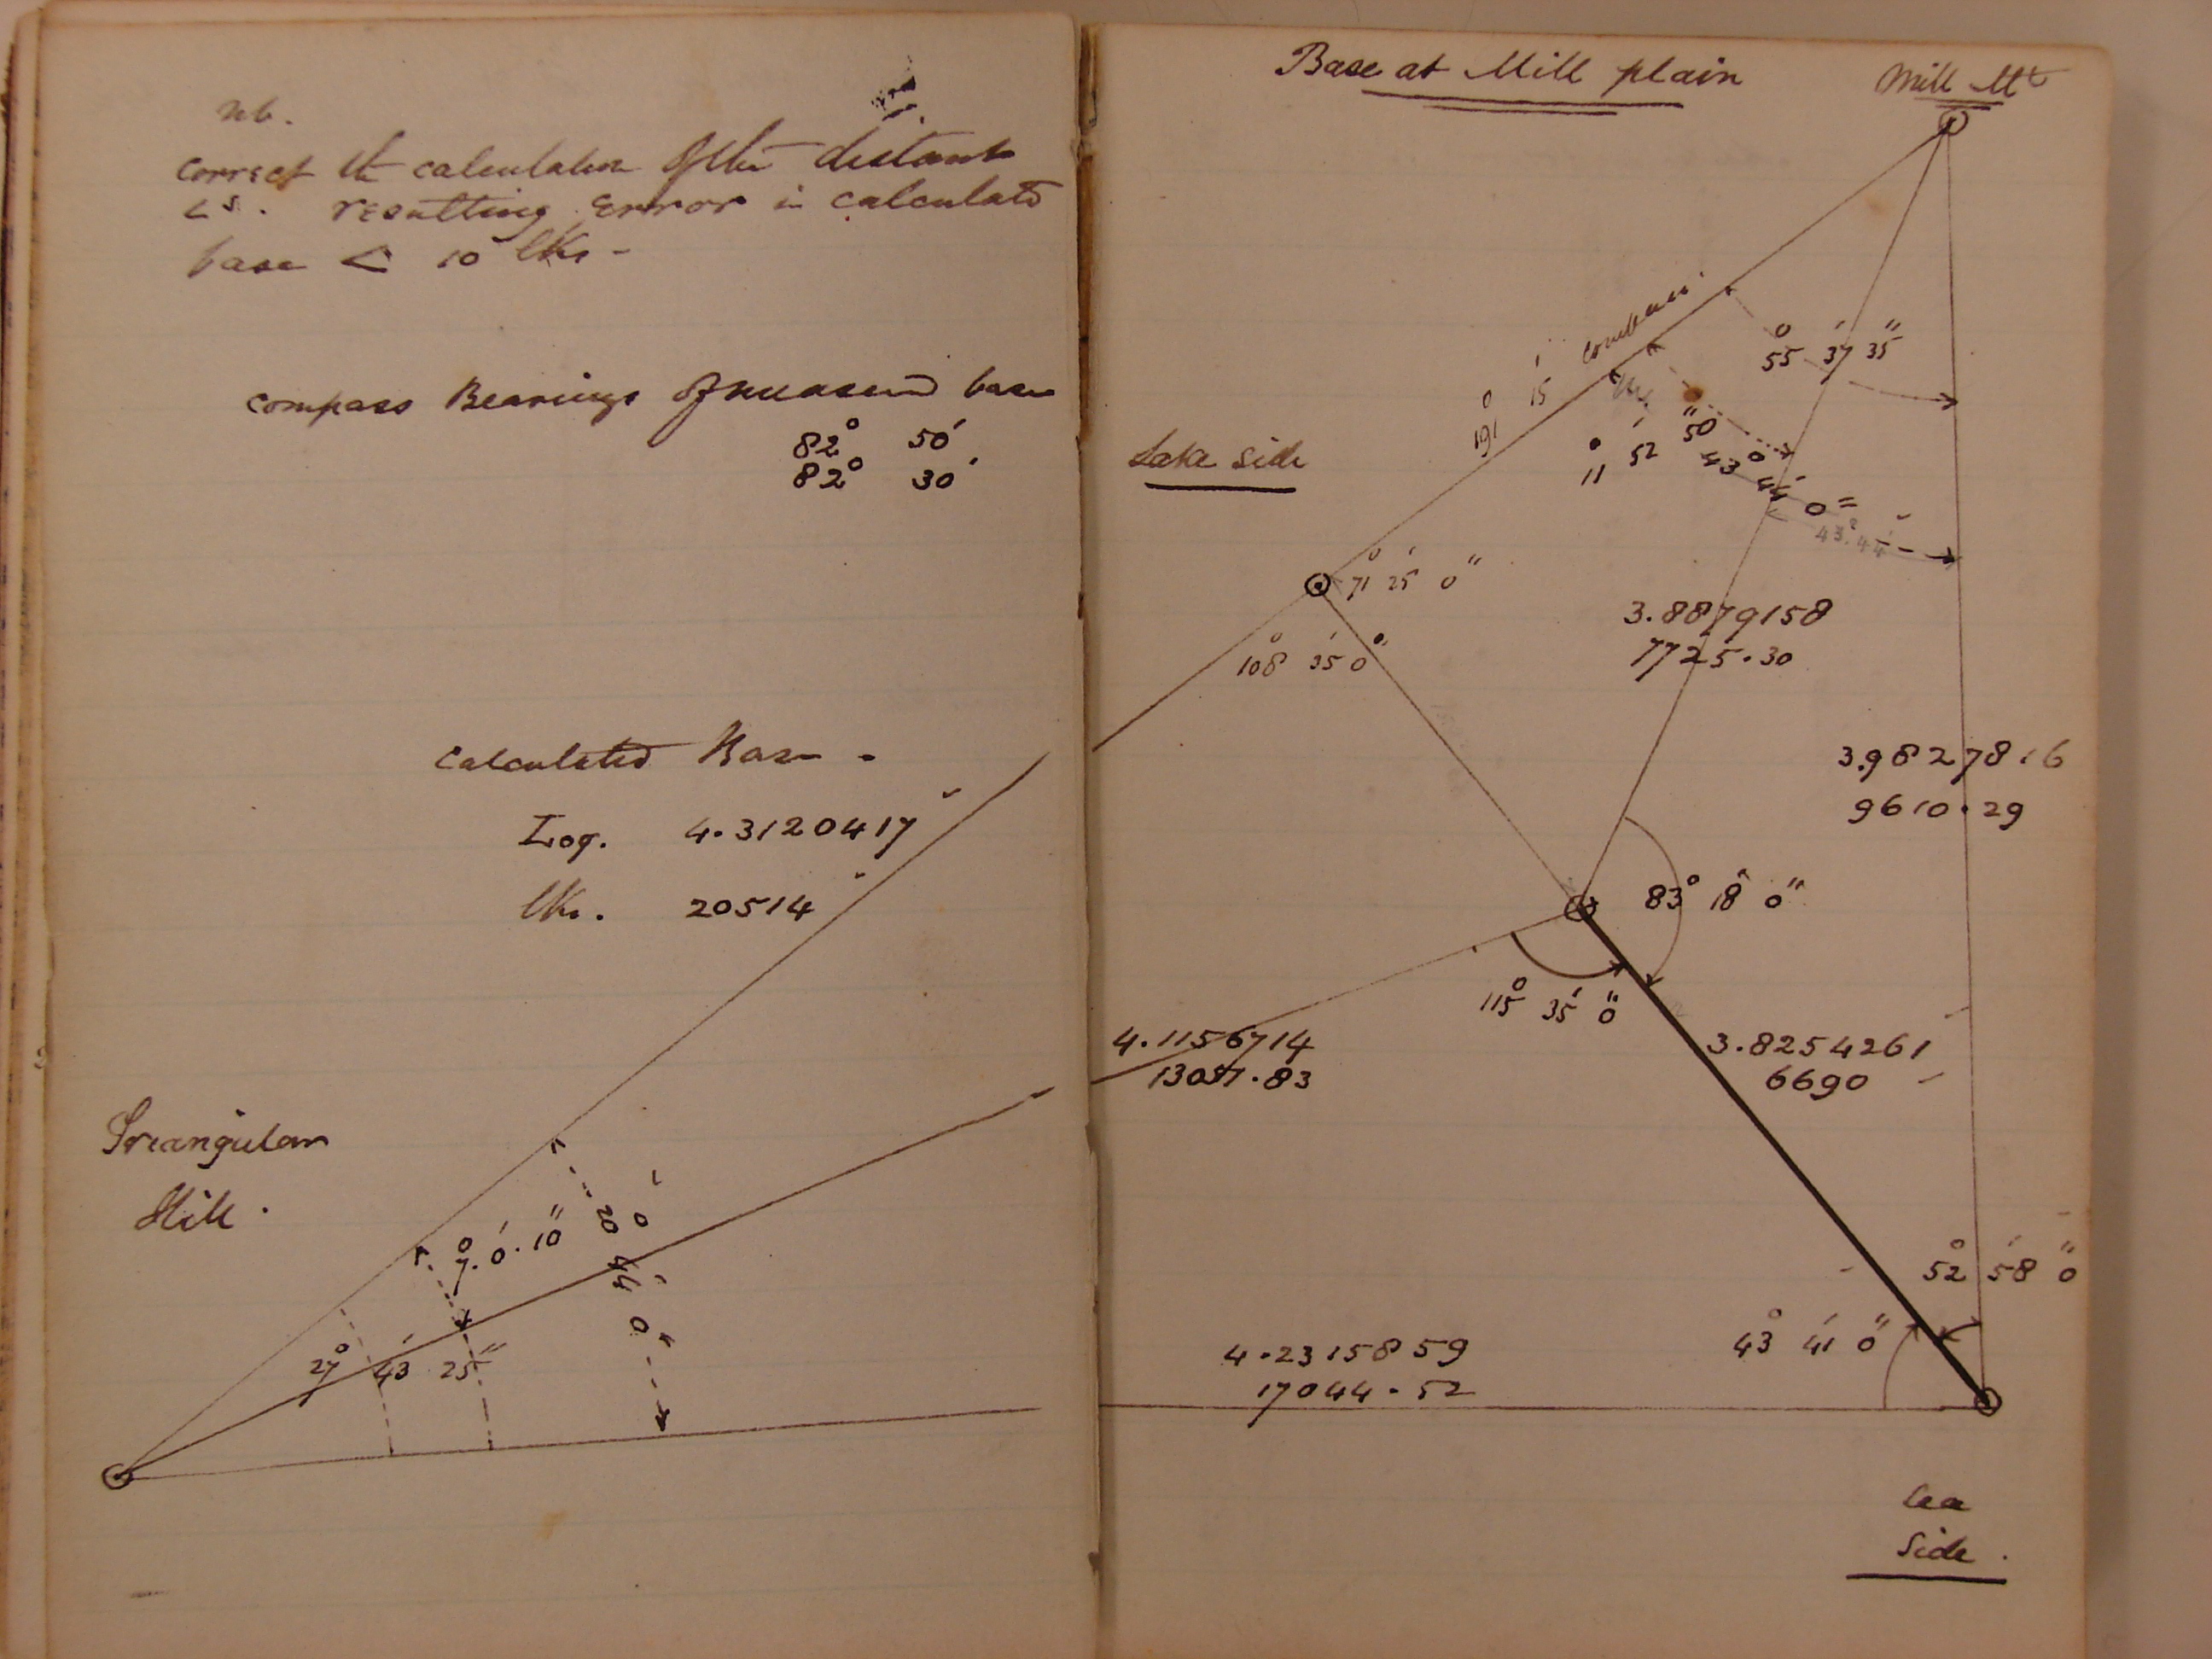 nb.
correct the calculation of the distant
<s. resulting error in calculated
base < 10 lks -
Compass Bearings of measured base
82° 50'
82° 30'
Calculated Base -
Log. 4.3120417
lks. 20514
Triangular
Hill.
7° 0' 10"
20° 44' 0"
27° 43' 25"
Base at Mill plain
Mill Mt
55° 37' 35"
191° 15'
11° 52' 50"
43° 44' 0"
43° 44'
Lake side
71° 25' 0"
108° 35' 0"
3.8879158
7725.30
3.9827816
9610.29
83° 18' 0"
115° 35' 0"
4.1156714
3.8254261
6690
52° 58' 0"
43° 41' 0"
4.2315859
17044.52
Sea
Side.